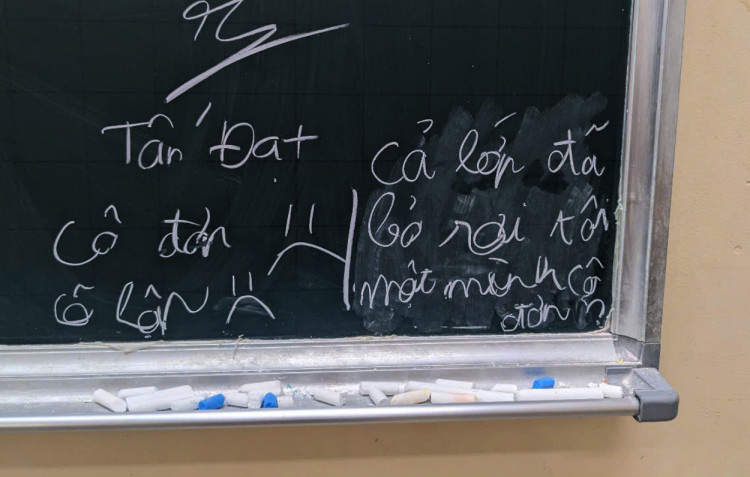 Tấn Đạt
Cô đơn
ô lận
Cả lớp đã
bỏ rơi tôi
một mình cô
đơn